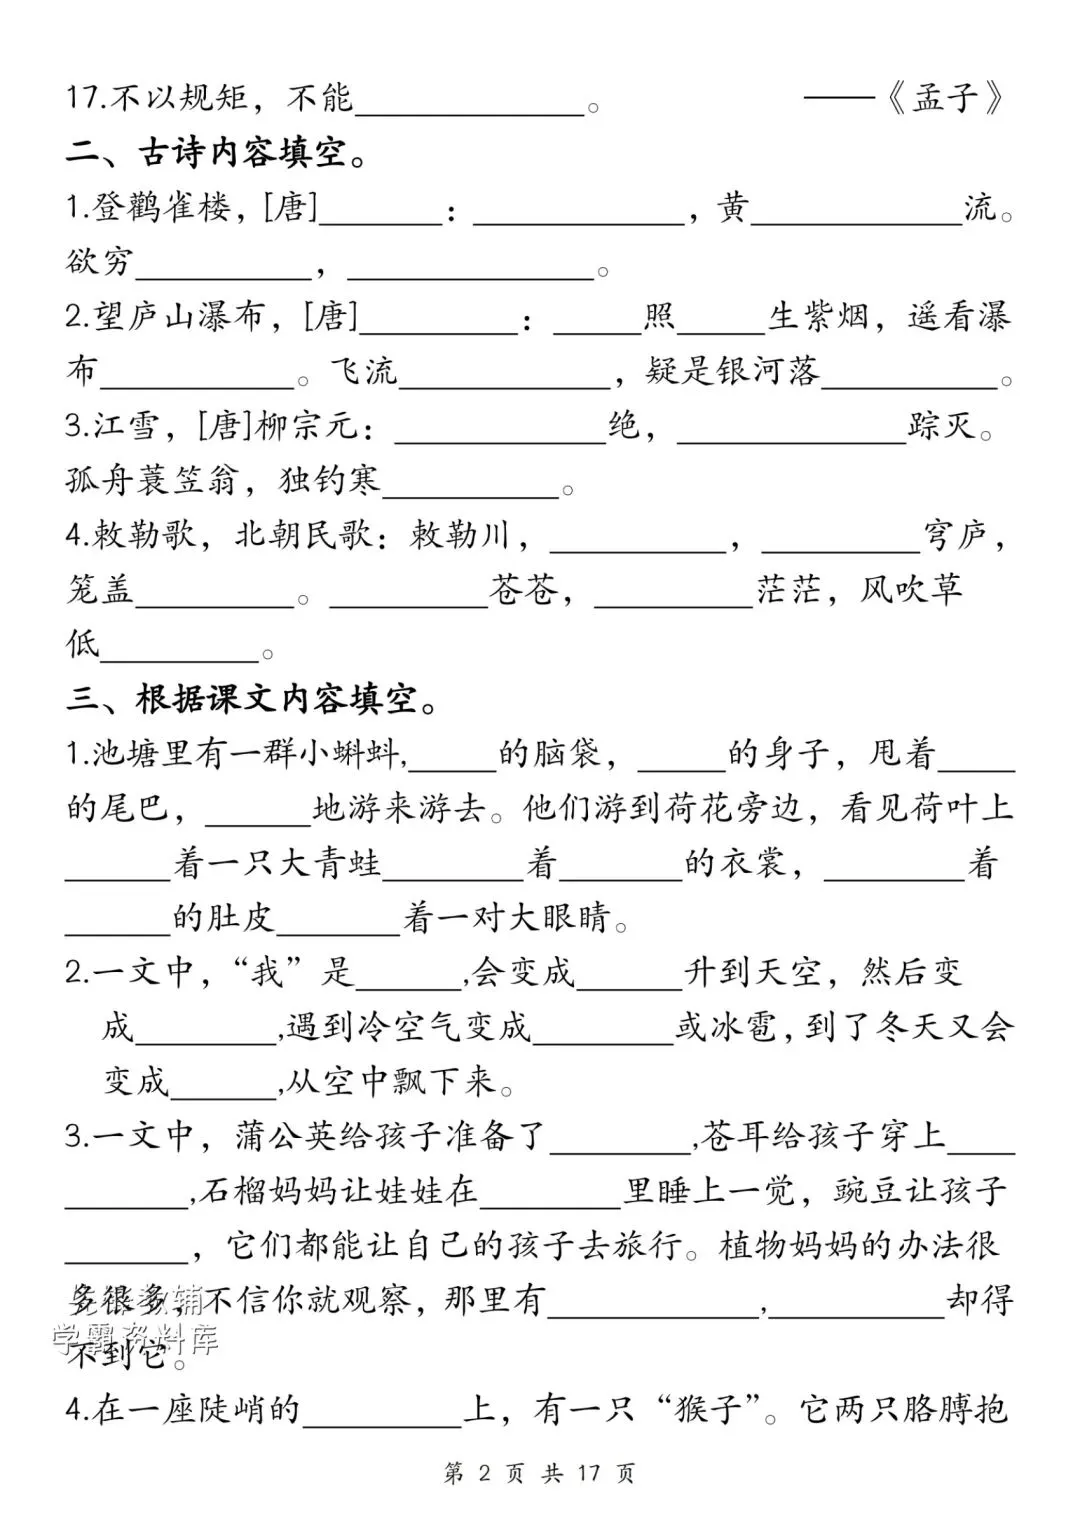 17.不以规矩，不能_____________。 ——《孟子》
二、古诗内容填空。
1.登鹳雀楼，[唐]_______：____________，黄____________流。
欲穷__________，______________。
2.望庐山瀑布，[唐]_________：_____照_____生紫烟，遥看瀑
布___________。飞流____________，疑是银河落__________。
3.江雪，[唐]柳宗元：____________绝，_____________踪灭。
孤舟蓑笠翁，独钓寒__________。
4.敕勒歌，北朝民歌：敕勒川，__________，_________穹庐，
笼盖_________。_________苍苍，_________茫茫，风吹草
低_________。
三、根据课文内容填空。
1.池塘里有一群小蝌蚪,_____的脑袋，_____的身子，甩着____
的尾巴，______地游来游去。他们游到荷花旁边，看见荷叶上
______着一只大青蛙________着_______的衣裳，________着
______的肚皮_______着一对大眼睛。
2.一文中，“我”是______,会变成______升到天空，然后变
成________,遇到冷空气变成________或冰雹,到了冬天又会
变成______,从空中飘下来。
3.一文中，蒲公英给孩子准备了________,苍耳给孩子穿上____
_______,石榴妈妈让娃娃在________里睡上一觉，豌豆让孩子
_______，它们都能让自己的孩子去旅行。植物妈妈的办法很
多很多，不信你就观察，那里有____________,__________却得
不到它。
学霸资料库
4.在一座陡峭的_________上，有一只“猴子”。它两只胳膊抱
第 2 页 共 17 页